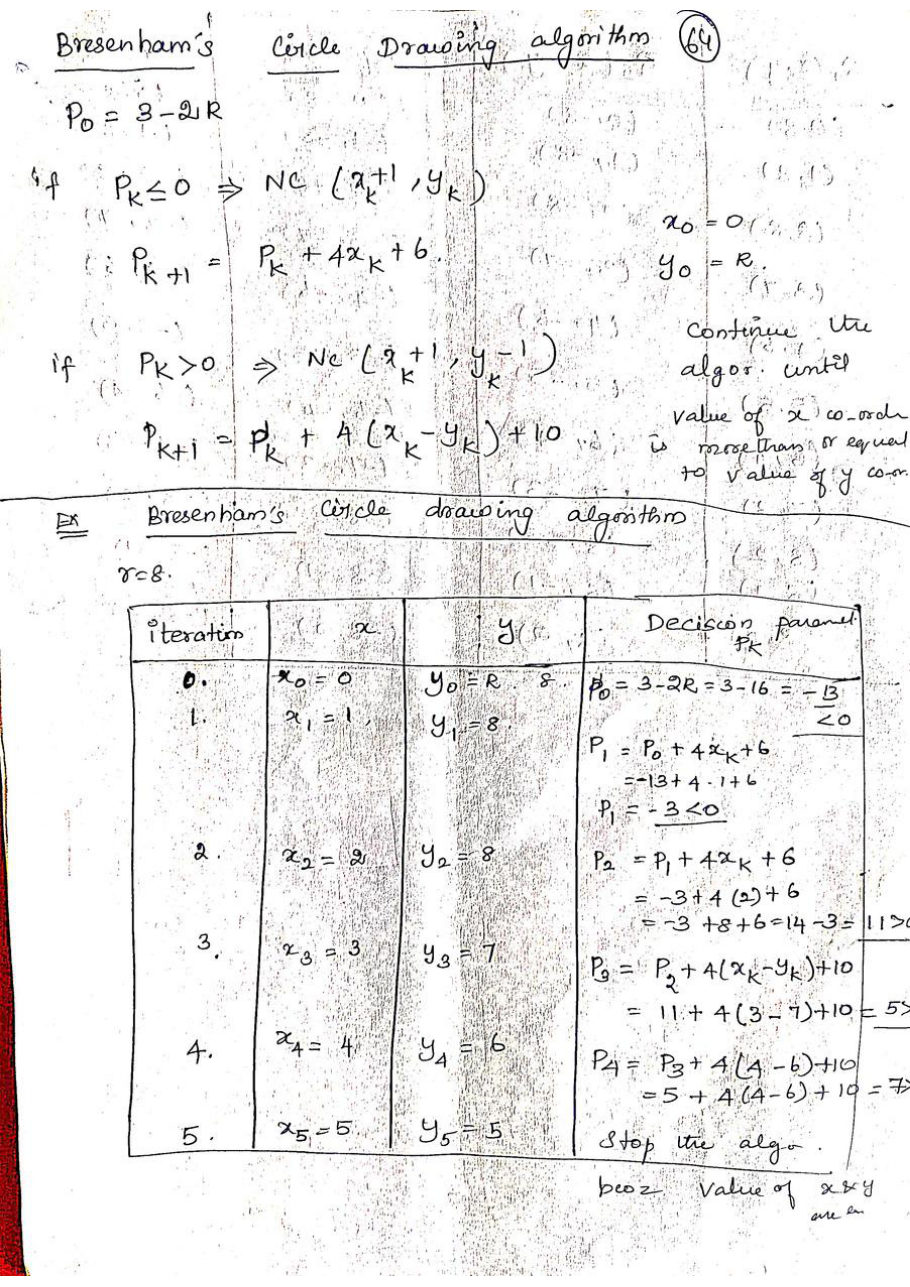 Bresenham's Circle Drawing algorithm 64
P₀ = 3-2R
if P_K ≤ 0 ⇒ NC (x_k+1, y_k)
x₀ = 0
P_K+1 = P_K + 4x_K + 6.
y₀ = R.
if P_K > 0 ⇒ NC (x_K+1, y_K-1)
P_K+1 = P_K + 4(x_K - y_K) + 10
Continue the
algor. until
value of x co-ordn
is more than or equal
to value of y co-or
Ex Bresenham's Circle drawing algorithm
r=8.
iteration x y Decision paramet. P_K
0. x₀ = 0 y₀ = R. 8. P₀ = 3-2R = 3-16 = -13
<0
1. x₁ = 1, y₁ = 8.
P₁ = P₀ + 4x_K + 6
= -13 + 4.1 + 6
P₁ = -3 < 0
2. x₂ = 2 y₂ = 8 P₂ = P₁ + 4x_K + 6
= -3 + 4(2) + 6
= -3 + 8 + 6 = 14 - 3 = 11 >0
3. x₃ = 3 y₃ = 7 P₃ = P₂ + 4(x_K - y_K) + 10
= 11 + 4(3-7) + 10 = 5>
4. x₄ = 4 y₄ = 6 P₄ = P₃ + 4(4-6) + 10
= 5 + 4(4-6) + 10 = 7>
5. x₅ = 5 y₅ = 5 Stop the algo.
beoz value of x & y
are